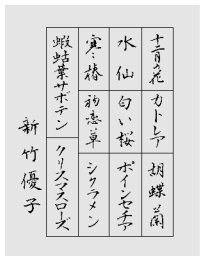 十二月の花
カトレア
胡蝶蘭
水仙
匂い桜
ポインセチア
寒椿
初恋草
シクラメン
蝦蛄葉サボテン
クリスマスローズ
新竹優子